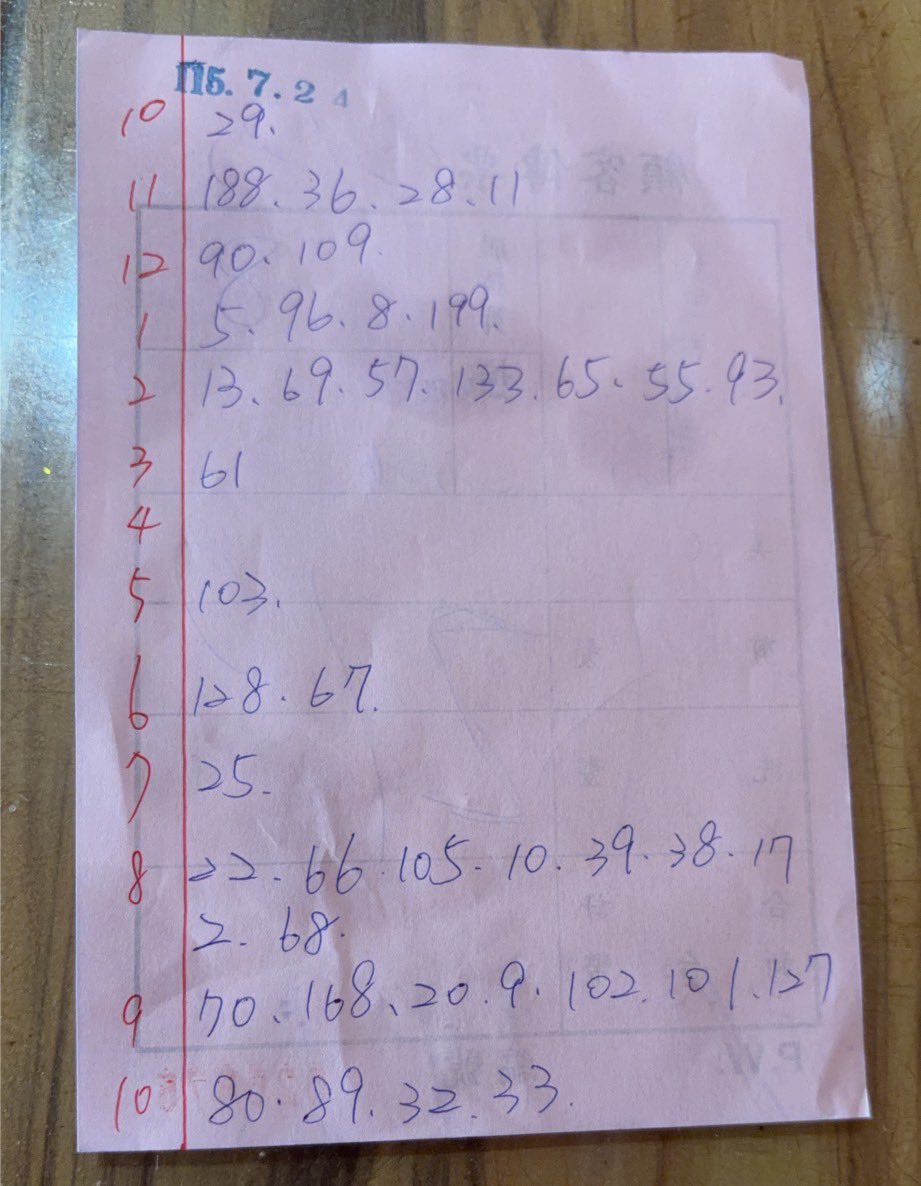 115.7.24
10 29.
11 188.36.28.11
12 90.109.
1 5.96.8.199.
2 13.69.57.133.65.55.93.
3 61
4
5 103.
6 128.67.
7 25.
8 22.66.105.10.39.38.17
2.68.
9 70.168.20.9.102.101.127
10 80.89.32.33.